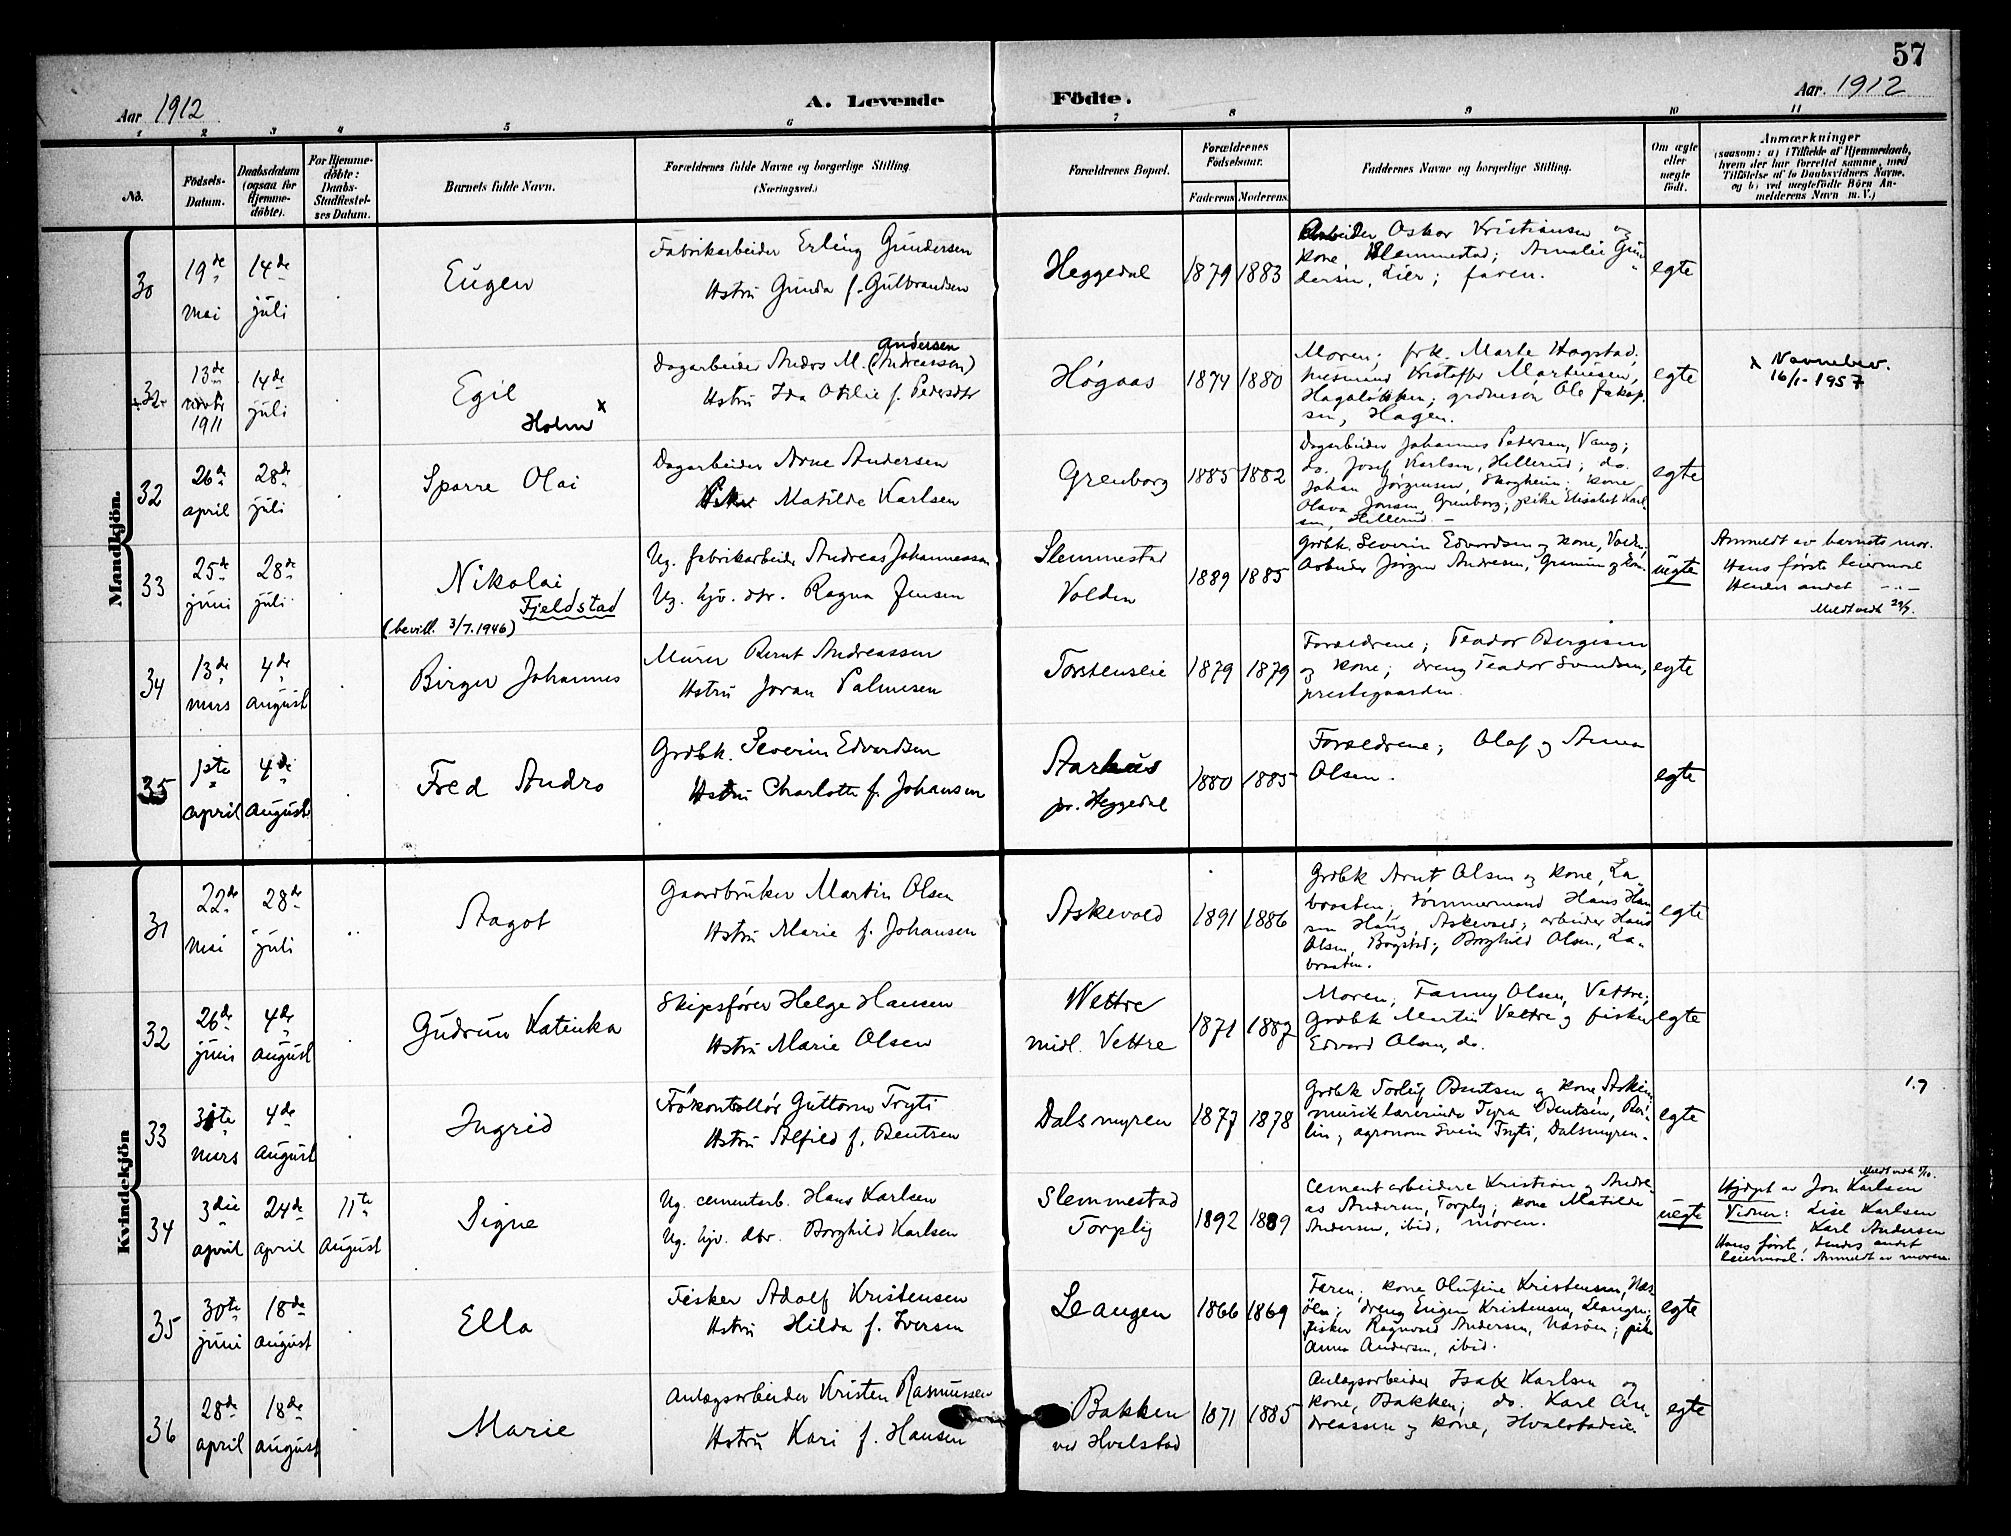 57
Aar 1912
A. Levende
Födte.
Aar. 1912
1 2 3 4 5 6 7 8 9 10 11
No.
Födsels-
Datum.
Daabsdatum
(ogsaa for
Hjemme-
döbte).
For Hjemme-
döbte:
Daabs-
Stadfæstel-
ses Datum.
Barnets fulde Navn.
Forældrenes fulde Navne og borgerlige Stilling.
(Næringsvei.)
Forældrenes Bopæl.
Forældrenes
Födselsaar.
Faderens
Moderens.
Faddernes Navne og borgerlige Stilling.
Om ægte
eller
uægte
födt.
Anmærkninger
(saasom: a) i Tilfælde af Hjemmedaab,
hvem der har forrettet samme, med
Tilföielse af to Daabsvidners Navne.
og b) ved uægtefödte Börn An-
melderens Navn m. V.)
Mandkjön.
30
19de
mai
14de
juli
Eugen
Fabrikarbeider Erling Gundersen
Hstru Gunda f. Gulbrandsen
Heggedal
1879
1883
Arbeider Oskar Kristiansen og
kone, Slemmestad; Amalie Gun
dersen, Lier; faren.
egte
32
13de
novbr
1911
14de
juli
Egil
Holm x
Dagarbeider Andrs M. (Andreassen)
Andersen
Hstru Ida Otilie f. Pedersdtr
Högaas
1874
1880
Moren; frk. Marte Hogstad,
husmand Kristoffer Martinsen,
Hagalökken; grdmesön Ole Jakop-
sen, Hagen.
egte
x Navnebev.
16/1-1957
32
26de
april
28de
juli
Sparre Olai
Dagarbeider Arne Andersen
Matilde Karlsen
Grenborg
1885
1882
Dagarbeider Johannes Petersen, Vang;
do. Josef Karlsen, Hellerud; do.
Johan Jörgensen, Skogheim; kone
Olava Jonsen, Grenborg; pike Elisabet Karl-
sen, Hellerud. -
egte
33
25de
juni
28de
juli
Nikolai
Fjeldstad
(bevill. 3/7.1946)
Ug. fabrikarbeider Andreas Johannessen
Ug. hjv. dtr. Ragna Jensen
Slemmestad
Volden
1889
1885
Grdbk. Severin Edvardsen og kone, Volden;
Arbeider Jörgen Andresen, og kone.
uegte
Anmeldt av barnets mor.
Hans förste leiermaal
Hendes andet -"-
Meldt vedk 29/7.
34
13de
mars
4de
august
Birger Johannes
Murer Bernt Andreassen
Hstru Joran Palmesen
Torstenseie
1879
1879
Forældrene; Teodor Bergesen
og kone; dreng Teodor Svendsen,
prestegaarden.
egte
35
1ste
april
4de
august
Fred Andrs
Grdbk. Severin Edvardsen
Hstru Charlotte f. Johansen
Aarhus
pr. Heggedal
1880
1885
Forældrene; Olaf og Anna
Olsen.
egte
Kvindekjön
31
22de
mai
28de
juli
Aagot
Gaardbruker Martin Olsen
Hstru Marie f. Johansen
Askevold
1891
1886
Grdbk Arnt Olsen og kone, La-
braaten; tömmermand Hans Han
sen Haug, Askevold; arbeider Hans
Olsen, Bogstad; Borghild Olsen, La-
braaten.
egte
32
26de
juni
4de
august
Gudrun Katinka
Skipsförer Helge Hansen
Hstru Marie Olsen
Wettre
midl. Vettre
1871
1882
Moren; Fanny Olsen, Vettre;
Grdbk Martin Vettre og fisker
Edvard Olsen, do.
egte
33
31te
mars
4de
august
Ingrid
Fökontrollör Guttorm Tryti
Hstru Alfild f. Bentsen
Dalsmyren
1877
1878
Grdbk Torleif Bentsen og kone, Asker;
musiklærerinde Tyra Bentsen, Ber-
lin; agronom Svein Tryti, Dalsmyren.
egte
1.7
34
3die
april
24de
april
11te
August
Signe
Ug. cementarb. Hans Karlsen
Ug. hjv. dtr. Borghild Karlsen
Slemmestad
Torplig
1892
1889
Cementarbeidere Kristian og Andre-
as Andersen, Torplig; kone Matilde
Andersen, ibid; moren.
uegte
Meldt vedk 1/10.
Hjdpt av Jon Karlsen
Vidner: Lise Karlsen
Karl Andersen
Hans förste, hendes andet
leiermaal. Anmeldt av moren.
35
30te
juni
18de
august
Ella
Fisker Adolf Kristensen
Hstru Hilda f. Iversen
Leangen
1866
1869
Faren; kone Olufine Kristensen, Næs
öen; dreng Eugen Kristensen, Leangen;
fisker Ragnvald Andersen, Næsöen; pike
Anna Andersen, ibid.
egte
36
28de
april
18de
august
Marie
Anlægsarbeider Kristen Rasmussen
Hstru Kari f. Hansen
Bakken
ved Hvalstad
1871
1885
Anlægsarbeider Isak Karlsen og
kone, Bakken; do. Karl An-
dreassen og kone, Hvalstadeie.
egte